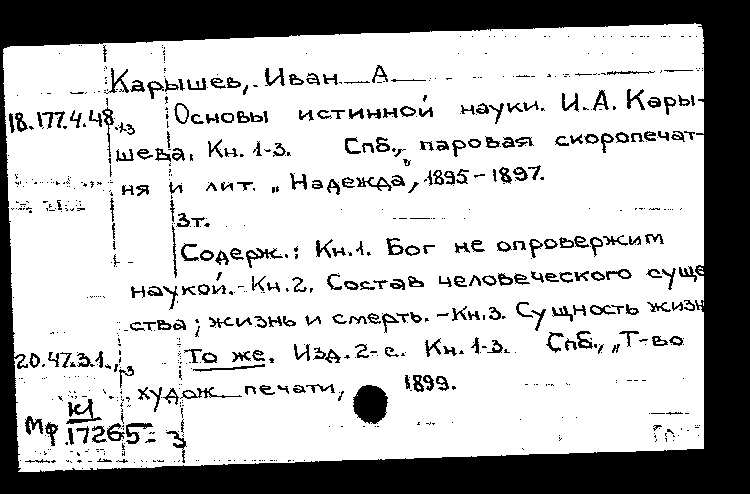 Карышев, Иван А.
18.177.4.48 1-3 Основы истинной науки. И.А. Кары-
шева. Кн. 1-3. Спб., паровая скоропечат-
ня и лит. „Надежда", 1895-1897.
3т.
Содерж.: Кн.1. Бог не опровержим
наукой.-Кн.2. Состав человеческого суще
ства; жизнь и смерть.-Кн.3. Сущность жизн
20.47.3.1., 1-3 То же. Изд. 2-е. Кн. 1-3. Спб., „Т-во
худож. печати, 1899.
Мф К1
17265-3